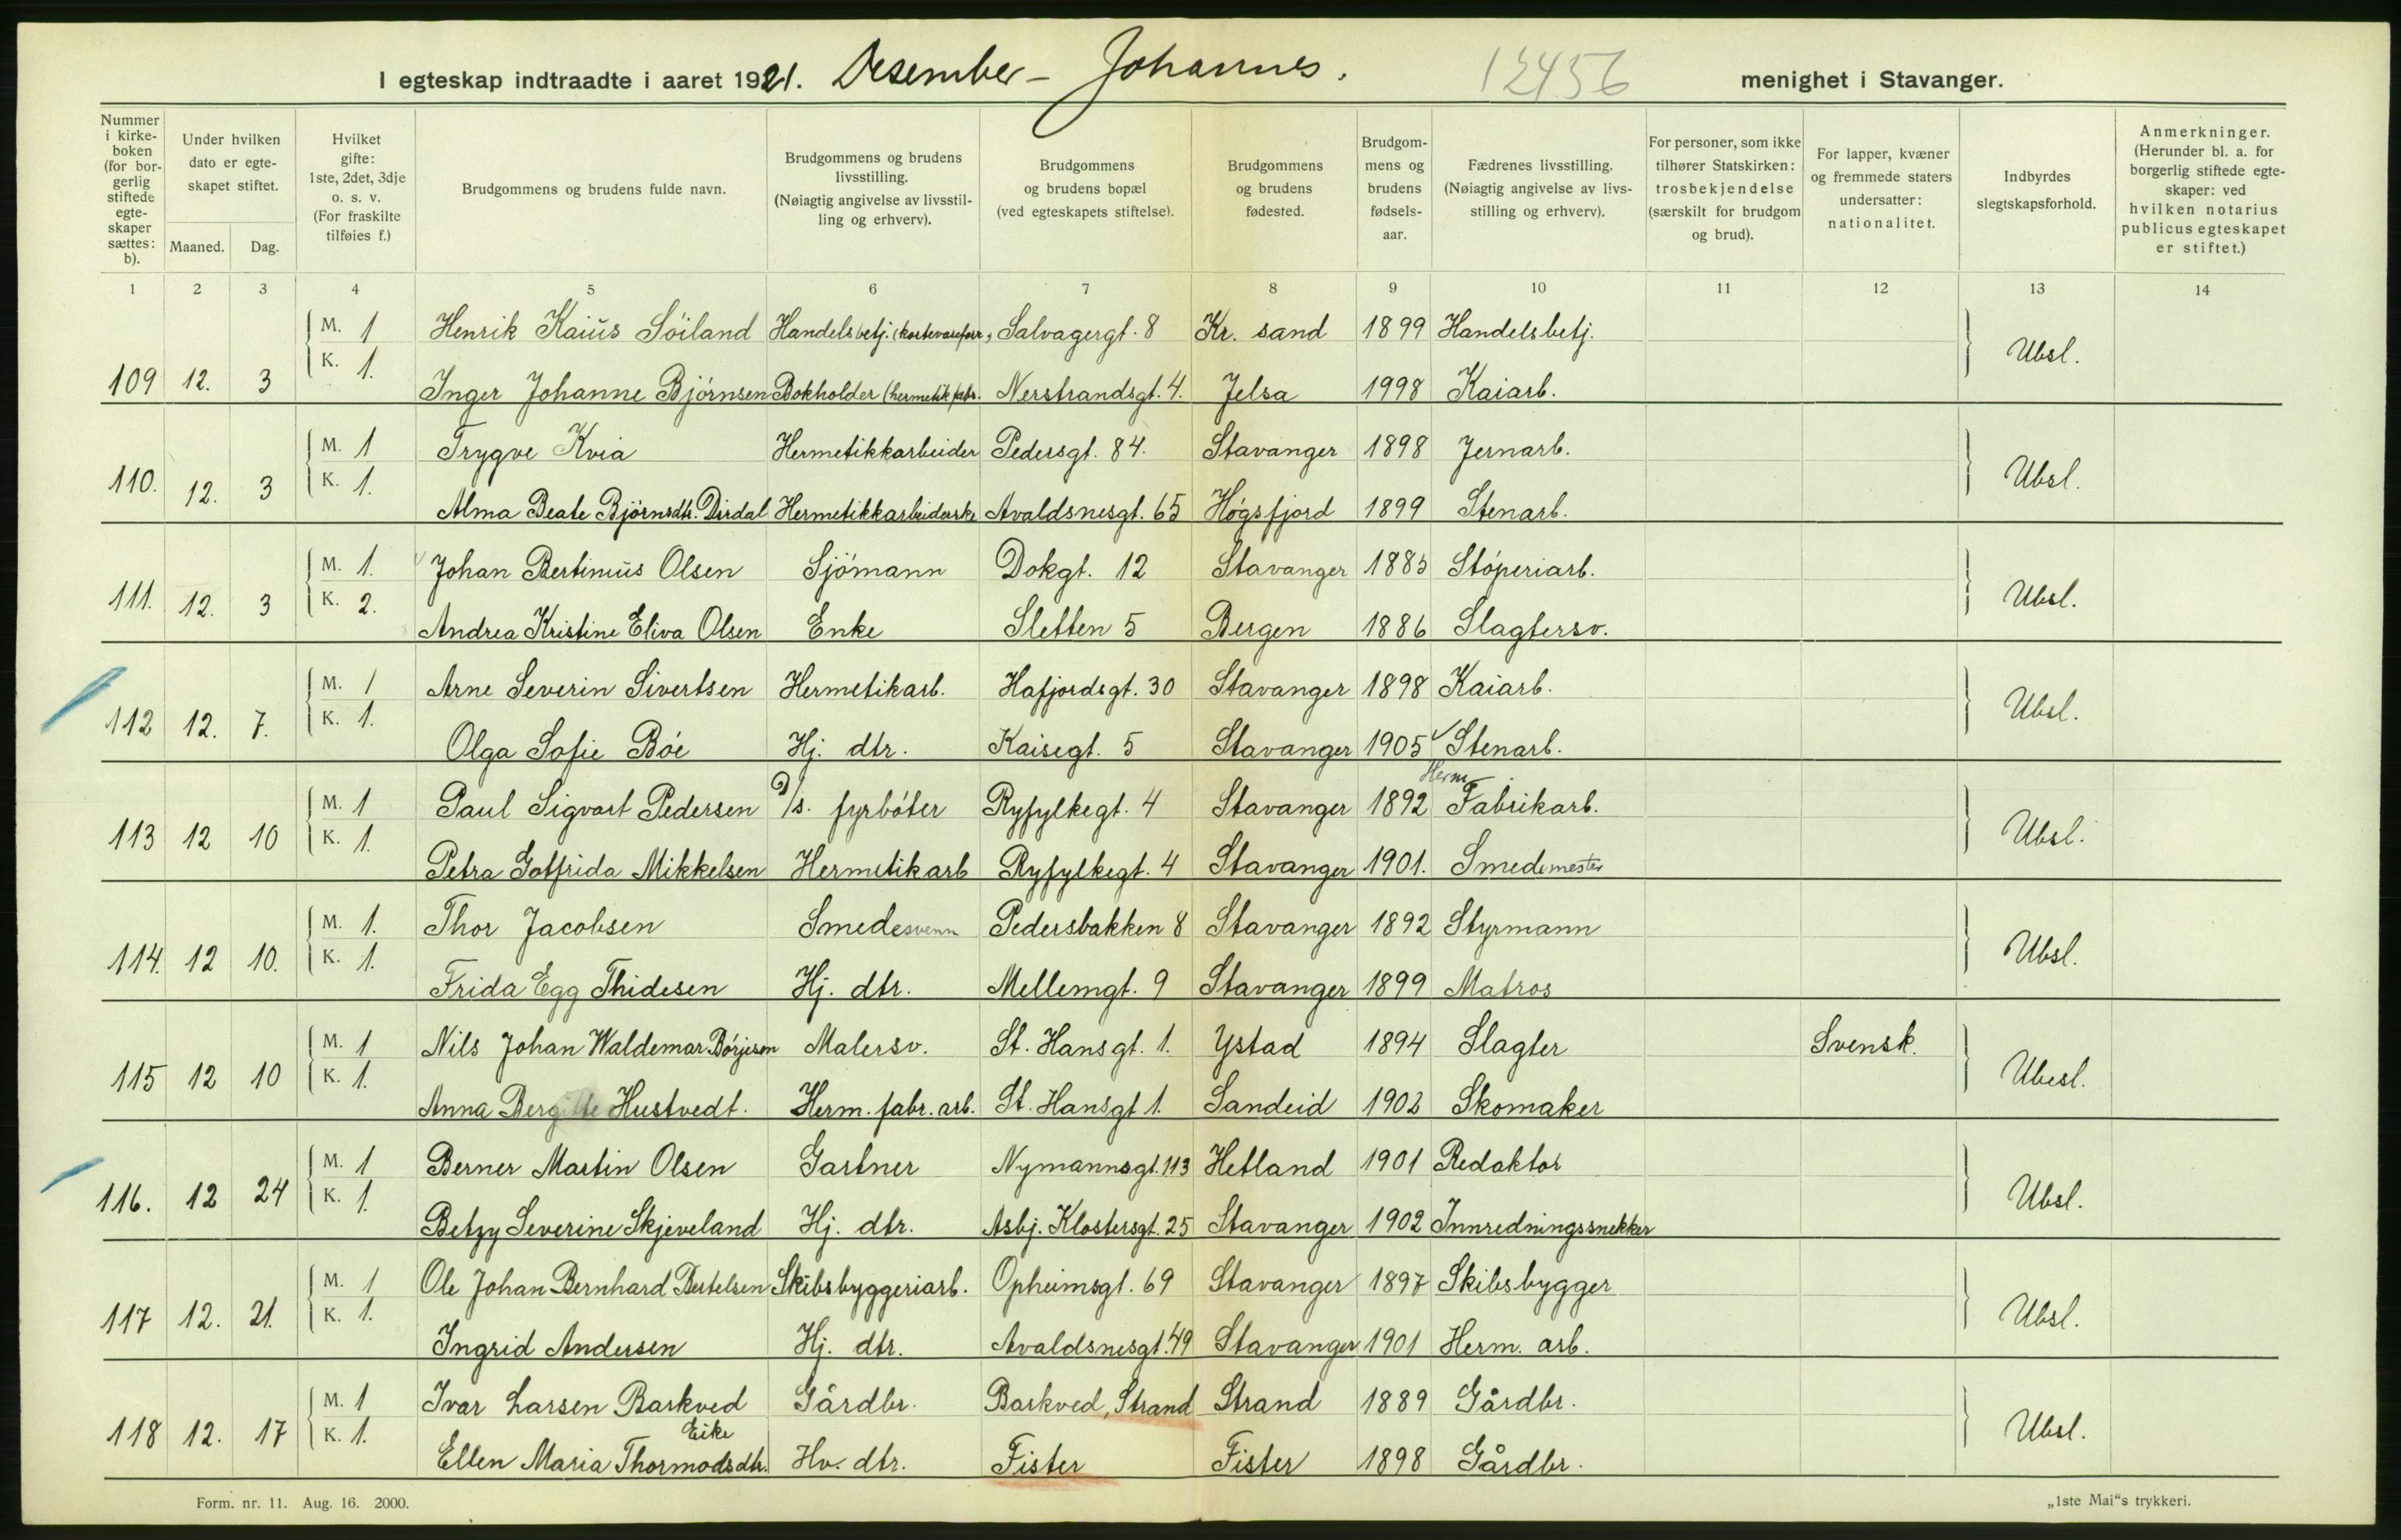 I egteskap indtraadte i aaret 1921. Desember – Johannes. 12456 menighet i Stavanger.
Nummer i kirke-boken (for bor-gerlig stiftede egte-skaper sættes: b).
Under hvilken dato er egte-skapet stiftet.
Maaned. Dag.
Hvilket gifte: 1ste, 2det, 3dje o. s. v. (For fraskilte tilføies f.)
Brudgommens og brudens fulde navn.
Brudgommens og brudens livsstilling. (Nøiagtig angivelse av livsstil-ling og erhverv).
Brudgommens og brudens bopæl (ved egteskapets stiftelse).
Brudgommens og brudens fødested.
Brudgom-mens og brudens fødsels-aar.
Fædrenes livsstilling. (Nøiagtig angivelse av livs-stilling og erhverv).
For personer, som ikke tilhører Statskirken: trosbekjendelse (særskilt for brudgom og brud).
For lapper, kvæner og fremmede staters undersatter: nationalitet.
Indbyrdes slegtskapsforhold.
Anmerkninger. (Herunder bl. a. for borgerlig stiftede egte-skaper: ved hvilken notarius publicus egteskapet er stiftet.)
1 2 3 4 5 6 7 8 9 10 11 12 13 14
M. 1 Henrik Kaius Söiland Handelsbetj. (kortevareforr., Salvagergt. 8 Kr. sand 1899 Handelsbetj.
109 12. 3 K. 1. Inger Johanne Björnsen Bokholder (hermetikfabr. Nerstrandsgt. 4. Jelsa 1998 Kaiarb. Ubsl.
M. 1 Trygve Kvia Hermetikkarbeider Pedersgt. 84. Stavanger 1898 Jernarb.
110. 12. 3 K. 1. Alma Beate Björnsdtr. Dirdal Hermetikkarbeiderske Avaldsnesgt. 65 Høgsfjord 1899 Stenarb. Ubsl.
M. 1. Johan Bertinius Olsen Sjömann Dokgt. 12 Stavanger 1885 Støperiarb.
111. 12. 3 K. 2. Andrea Kristine Eliva Olsen Enke Sletten 5 Bergen 1886 Slagtersv. Ubsl.
M. 1 Arne Severin Sivertsen Hermetikarb. Hafjordsgt. 30 Stavanger 1898 Kaiarb.
112 12. 7. K. 1. Olga Sofie Böe Hj. dtr. Kaisegt. 5 Stavanger 1905 Stenarb. Ubsl.
Herm.
M. 1 Paul Sigvart Pedersen D/s. fyrböter Ryfylkegt. 4 Stavanger 1892 Fabrikarb.
113 12 10 K. 1. Petra Gotfrida Mikkelsen Hermetikarb Ryfylkegt. 4 Stavanger 1901. Smedemester Ubsl.
M. 1. Thor Jacobsen Smedesvenn Pedersbakken 8 Stavanger 1892 Styrmann
114. 12 10. K. 1. Frida Egg Thidesen Hj. dtr. Mellemgt. 9 Stavanger 1899 Matros Ubsl.
M. 1 Nils Johan Waldemar Börjeson Malersv. St. Hansgt. 1. Ystad 1894 Slagter Svensk.
115 12 10 K. 1. Anna Bergitte Hustvedt. Herm. fabr. arb. St. Hansgt 1. Sandeid 1902 Skomaker Ubesl.
M. 1 Berner Martin Olsen Gartner Nymannsgt. 113 Hetland 1901 Redaktör
116. 12 24 K. 1. Betzy Severine Skjeveland Hj. dtr. Asbj. Klostersgt. 25 Stavanger 1902 Innredningssnekker Ubsl.
M. 1 Ole Johan Bernhard Bertelsen Skibsbyggeriarb. Opheimsgt. 69 Stavanger 1897 Skibsbygger
117 12. 21. K. 1. Ingrid Andersen Hj. dtr. Avaldsnesgt. 49 Stavanger 1901 Herm. arb. Ubsl.
M. 1 Ivar Larsen Barkved Gårdbr. Barkved, Strand Strand 1889 Gårdbr.
Eike
118 12. 17 K. 1. Ellen Maria Thormodsdtr. Hv. dtr. Fister Fister 1898 Gårdbr. Ubsl.
Form. nr. 11. Aug. 16. 2000.
„1ste Mai“s trykkeri.